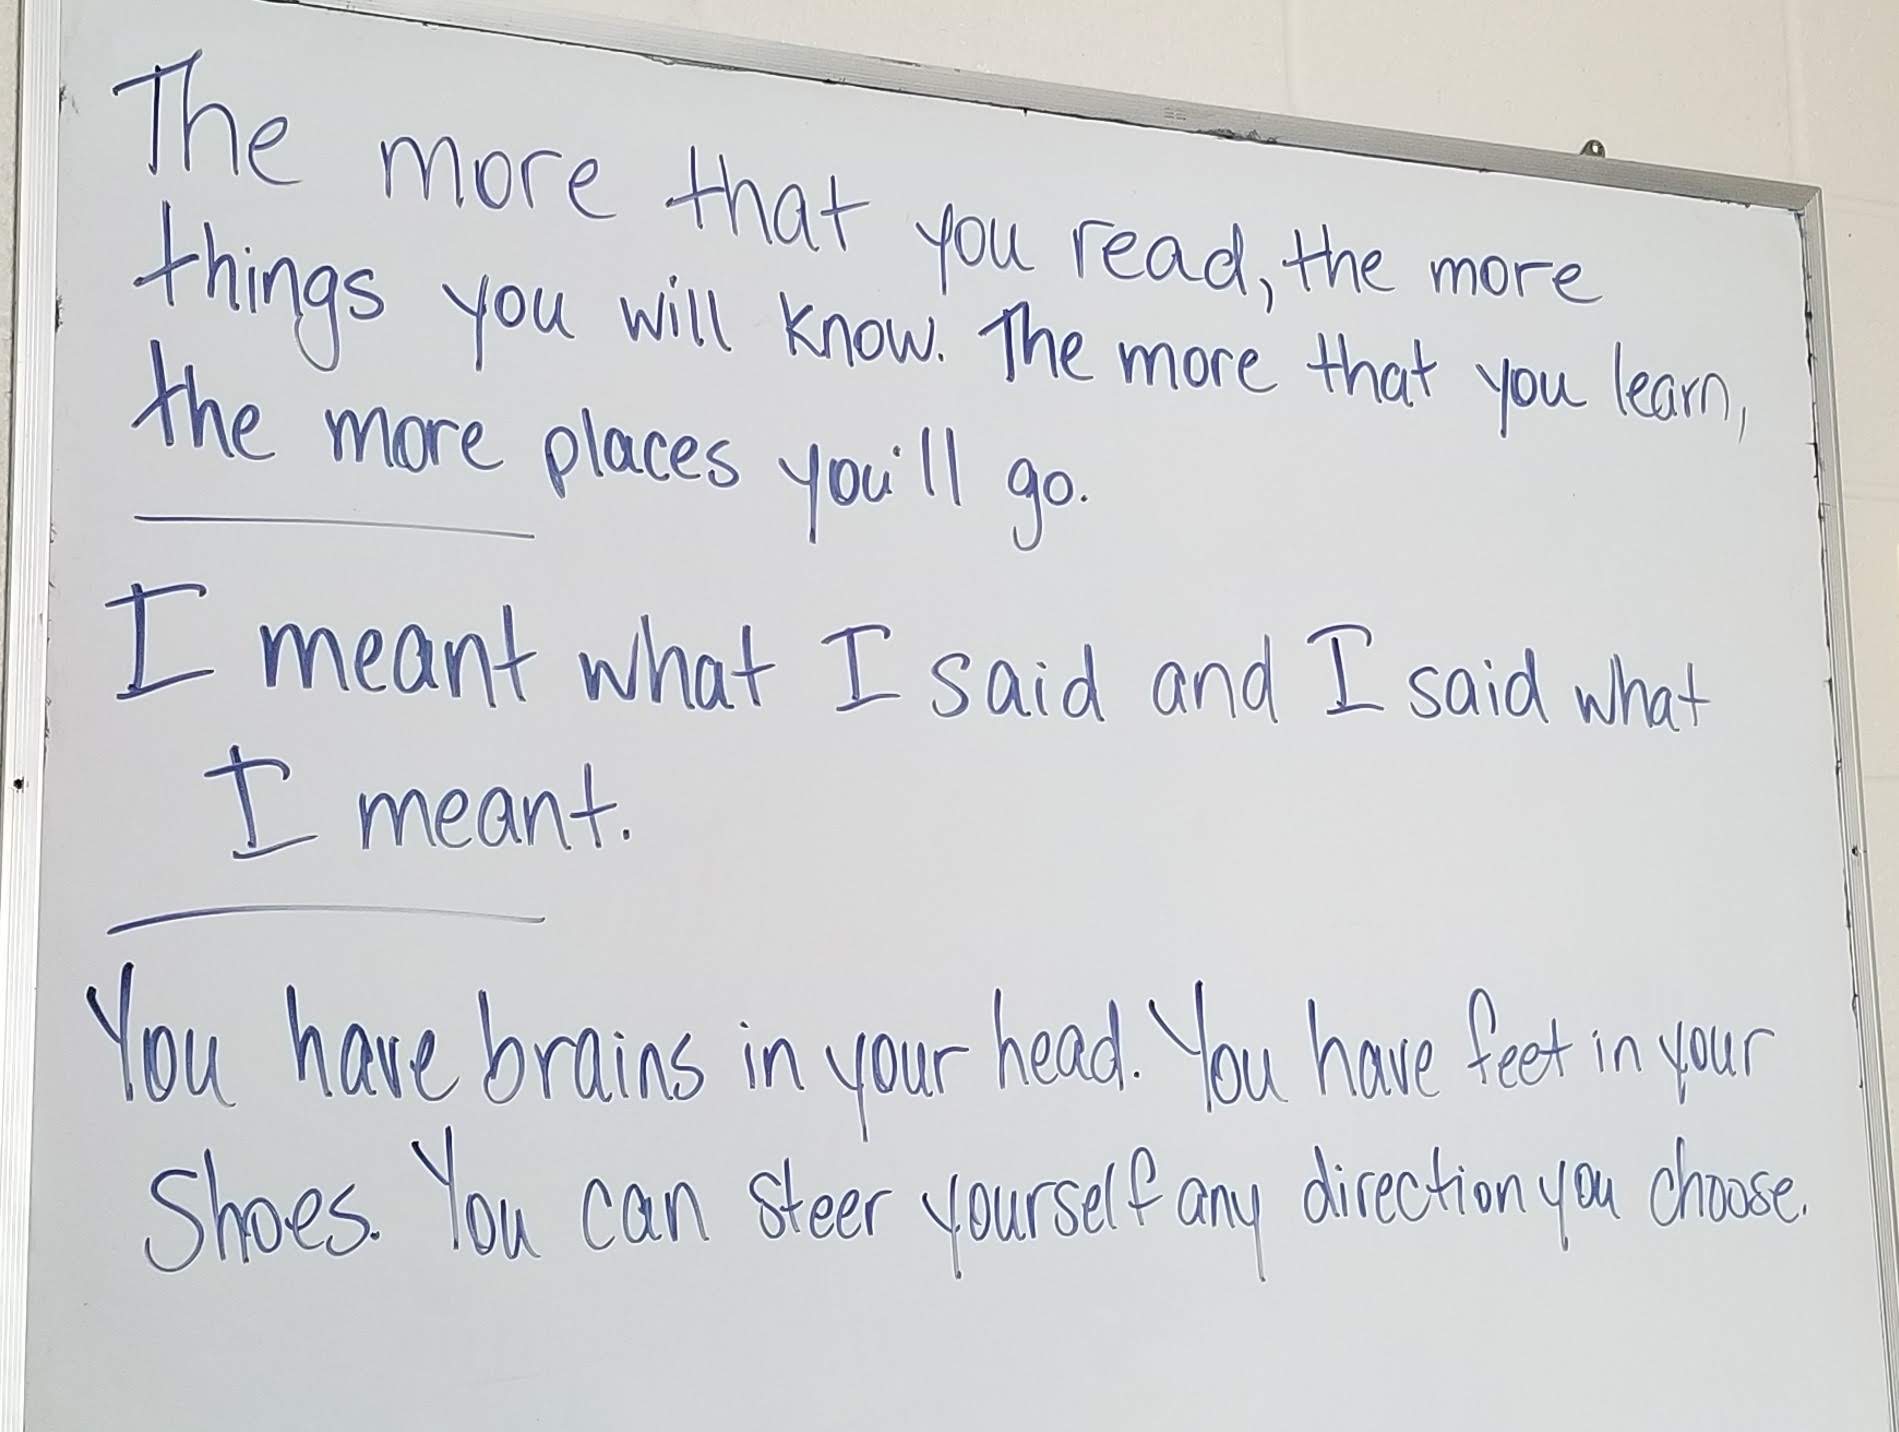 The more that you read, the more
things you will know. The more that you learn,
the more places you'll go.
I meant what I said and I said what
I meant.
You have brains in your head. You have feet in your
Shoes. You can steer yourself any direction you choose.